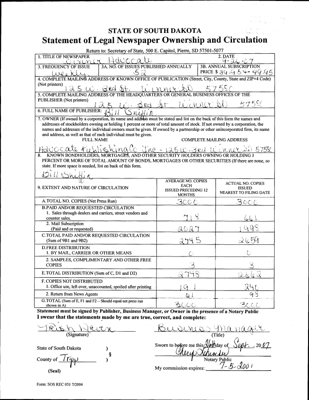 STATE OF SOUTH DAKOTA
Statement of Legal Newspaper Ownership and Circulation
Return to: Secretary of State, 500 E. Capitol, Pierre, SD 57501-5077
1. TITLE OF NEWSPAPER
2. DATE
Winner Advocate
3. FREQUENCY OF ISSUE
3A. NO. OF ISSUES PUBLISHED ANNUALLY
3B. ANNUAL SUBSCRIPTION
Weekly
52
PRICE $
4. COMPLETE MAILING ADDRESS OF KNOWN OFFICE OF PUBLICATION (Street, City, County, State and ZIP+4 Code)
(Not printers)
5. COMPLETE MAILING ADDRESS OF THE HEADQUARTERS OF GENERAL BUSINESS OFFICES OF THE
PUBLISHER (Not printers)
6. FULL NAME OF PUBLISHER:
Bill
7. OWNER (If owned by a corporation, its name and address must be stated and list on the back of this form the names and
addresses of stockholders owning or holding 1 percent or more of total amount of stock. If not owned by a corporation, the
names and addresses of the individual owners must be given. If owned by a partnership or other unincorporated firm, its name
and address, as well as that of each individual must be given.
FULL NAME
COMPLETE MAILING ADDRESS
Advocate Publishing Inc
8. KNOWN BONDHOLDERS, MORTGAGEES, AND OTHER SECURITY HOLDERS OWNING OR HOLDING 1
PERCENT OR MORE OF TOTAL AMOUNT OF BONDS, MORTGAGES OR OTHER SECURITIES (If there are none, so
state. If more space is needed, list on back of this form.
Bill
9. EXTENT AND NATURE OF CIRCULATION
AVERAGE NO. COPIES
EACH
ISSUED PRECEDING 12
MONTHS
ACTUAL NO. COPIES
ISSUED
NEAREST TO FILING DATE
A. TOTAL NO. COPIES (Net Press Run)
3000
3000
B. PAID AND/OR REQUESTED CIRCULATION
1. Sales through dealers and carriers, street vendors and
counter sales.
718
661
2. Mail Subscription
(Paid and/or requested)
2027
1998
C. TOTAL PAID AND/OR REQUESTED CIRCULATION
(Sum of 9B1 and 9B2)
2745
2659
D. FREE DISTRIBUTION
1. BY MAIL, CARRIER OR OTHER MEANS
2. SAMPLES, COMPLIMENTARY AND OTHER FREE
COPIES
E. TOTAL DISTRIBUTION (Sum of C, D1 and D2)
F. COPIES NOT DISTRIBUTED
1. Office use, left over, unaccounted, spoiled after printing
2. Return from News Agents
G. TOTAL (Sum of E, F1 and F2 – Should equal net press run
shown in A)
3000
3000
Statement must be signed by Publisher, Business Manager, or Owner in the presence of a Notary Public
I swear that the statements made by me are true, correct, and complete:
Business Manager
(Signature)
(Title)
State of South Dakota
Sworn to before me this
day of Sept. 2007
County of Tripp
Notary Public
(Seal)
My commission expires:
Form: SOS REC 051 7/2004